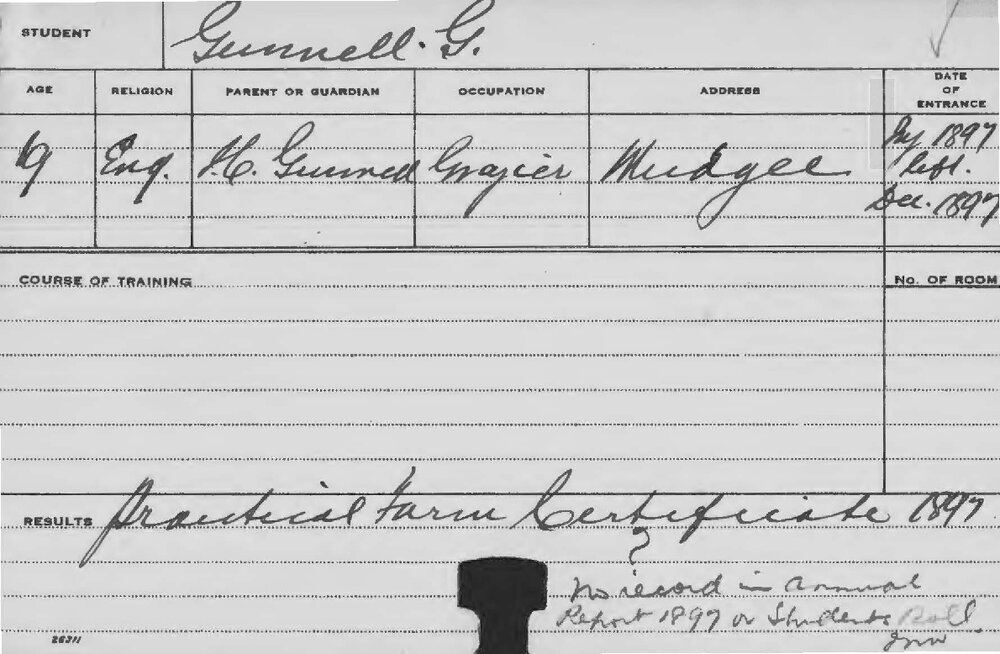 STUDENT Gunnell. G.
AGE RELIGION PARENT OR GUARDIAN OCCUPATION ADDRESS DATE OF ENTRANCE
19 Eng. H. Gunnell Grazier Mudgee Jy 1897
left.
Dec. 1897
COURSE OF TRAINING No. OF ROOM
RESULTS Practical Farm Certificate 1897
?
No record in Annual
Report 1897 or Students Roll.
26311